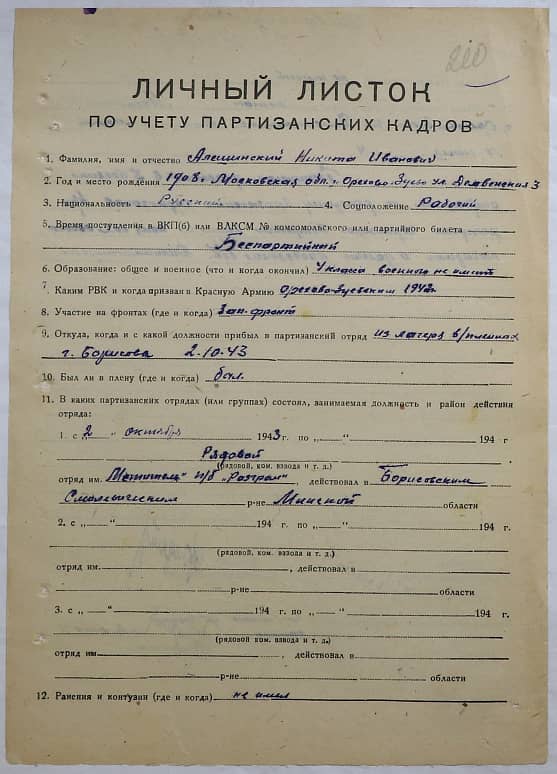 210
ЛИЧНЫЙ ЛИСТОК
ПО УЧЕТУ ПАРТИЗАНСКИХ КАДРОВ
1. Фамилия, имя и отчество Алешинский Никита Иванович
2. Год и место рождения 1908 г. Московская обл. г. Орехово-Зуево ул.
3. Национальность Русский 4. Соцположение Рабочий
5. Время поступления в ВКП(б) или ВЛКСМ № комсомольского или партийного билета
Беспартийный
6. Образование: общее и военное (что и когда окончил) 4 класса военного не имеет
7. Каким РВК и когда призван в Красную Армию Орехово-Зуевским 1942г.
8. Участие на фронтах (где и когда) Зап. фронт
9. Откуда, когда и с какой должности прибыл в партизанский отряд из лагеря в/пленных
г. Борисова 2.10.43
10. Был ли в плену (где и когда) был.
11. В каких партизанских отрядах (или группах) состоял, занимаемая должность и район действия
отряда:
1. с 2 „ октября 1943 г. по „ — “ 194 г
Рядовой
(рядовой, ком. взвода и т. д.)
отряд им. „Мститель" п/б „Разгром", действовал в Борисовским
Смолевичским р-не Минской области
2. с „ — “ 194 г. по „ — “ 194 г.
(рядовой, ком. взвода и т. д.)
отряд им. , действовал в
р-не области
3. с „ — “ 194 г. по „ — “ 194 г.
(рядовой, ком. взвода и т. д.)
отряд им. , действовал в
р-не области
12. Ранения и контузии (где и когда) не имел